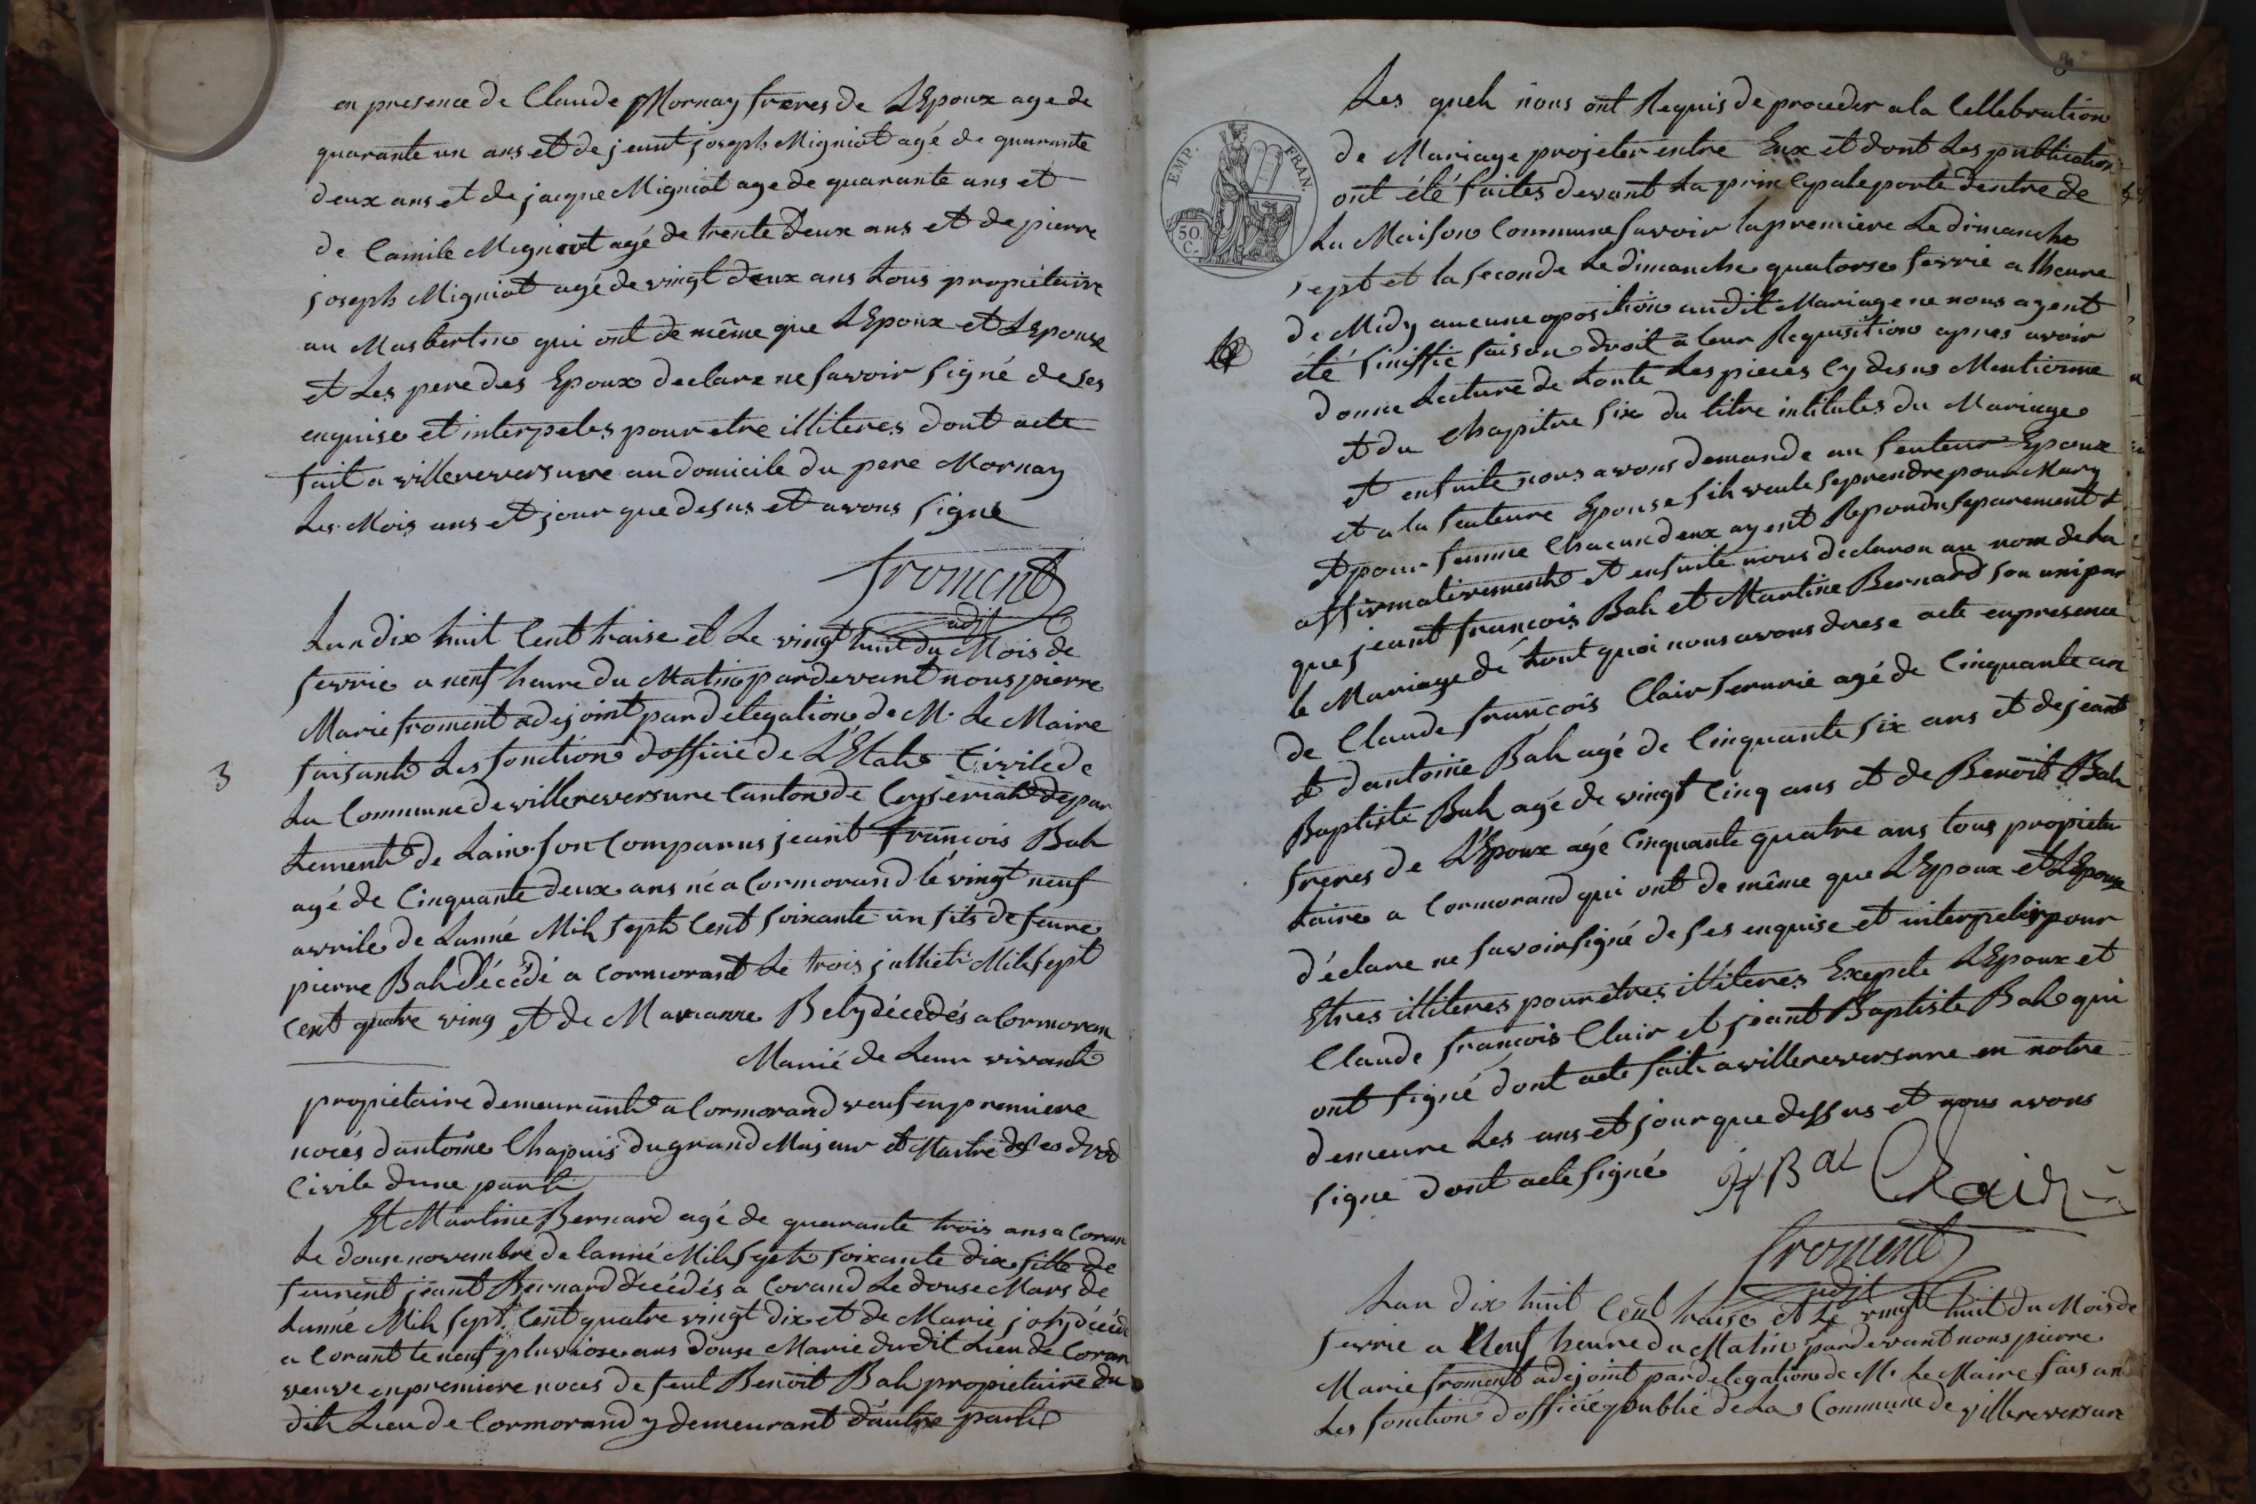 en presence de Claude Mornay freres de LEpoux age de
quarante un ans et de jeant joseph Migniot agé de quarante
deux ans et de jacque Migniot age de quarante ans et
de Camile Migniot agé de trente deux ans et de pierre
joseph Migniot agé de vingt deux ans tous propiétaire
au Masbertin qui ont de même que LEpoux et LEpouse
et Les pere des Epoux declare ne savoir signé de ses
enquise et interpeles pour etre illiteres dont acte
fait a villereversure au domicile du pere Mornay
Les Mois ans et jour que desus et avons signe
froment
adjt
Lan dix huit Cent traise et Le vingt huit du Mois de
fevrie a neuf heure du Matin pardevant nous pierre
Marie froment adejoint par delegation de M. Le Maire
faisant Les fonction dofficie de LEtat Civile de
3
La Commune de villereversure Canton de Ceyseriat depar
tement de Lain son Comparus jeant francois Bal
agé de Cinquante deux ans né a Cormorand le vingt neuf
avrile de Lanné Mil sept Cent soixante un fils de feure
pierre Bal décédé a Cormorant Le trois julliet Mil sept
Cent quatre ving et de Marianne Bely décedés a Cormoran
Marié de Leur vivant
propietaire demeurant a Cormorand veuf en premiere
noces dantoine Chapuis du grand Majeur et Maitre de ses droit
Civile dune part
Et Martine Bernard agé de quarante trois ans a Coran
Le douse novembre de lanné Mil sept soixante dix fille de
feurent jeant Bernard décédés a Corand Le douse Mars de
Lanné Mil sept Cent quatre vingt dix et de Marie joly décéde
a Corant le neuf pluviose ans douse Marie dudit Lieu de Coran
veuve en premiere noces de feut Benoit Bal propietaire du
dit Lieu de Cormorand y demeurant dautre part
8
EMP. FRAN.
50 C.
Les quels nous ont Requis de proceder a la Cellebration
de Mariage projeter entre Eux et dont Les publication
ont été faites devant La principale porte dentre de
La Maison Commune savoir la premiere Le dimanche
sept et la seconde Le dimanche quatorse fevrie a lheure
de Midy aucune oposition audit Mariage ne nous ayent
été siniffié faison droit a leur Requisition apres avoir
donne Lecture de toute Les pieces Cy desus Mentionne
et du Chapitre six du titre intitules du Mariage
et ensuite nous avons demande au feuteur Epoux
et a la feuteure Epouse sil veule se prendre pour Mary
et pour femme Chacun deux ayent Repondu separement et
affirmativement et ensuite nous declaron au nom de La
que jeant francois Bal et Martine Bernard son uni par
le Mariage de tout quoi nous avons drese acte en presence
de Claude francois Clair serurie agé de Cinquante an
et dantoine Bal agé de Cinquante six ans et de jeant
Baptiste Bal agé de vingt Cinq ans et de Benoit Bal
freres de LEpoux agé Cinquante quatre ans tous propieta
taire a Cormorand qui ont de même que LEpoux et LEpouse
déclare ne savoir signé de ses enquise et interpeler pour
Etres illiteres pour êtres illiteres Excepte LEpoux et
Claude francois Clair et jeant Baptiste Bal qui
ont signé dont acte fait a villereversure en notre
demeure Les ans et jour que dessus et nous avons
signe dont acte signé
JfBal Clair
froment
adjt
Lan dix huit Cent traise et Le vingt huit du Mois de
fevrie a Neuf heure du Matin pardevant nous pierre
Marie froment adejoint par delegation de M. Le Maire faisant
Les fonction dofficié publié de La Commune de villereversure